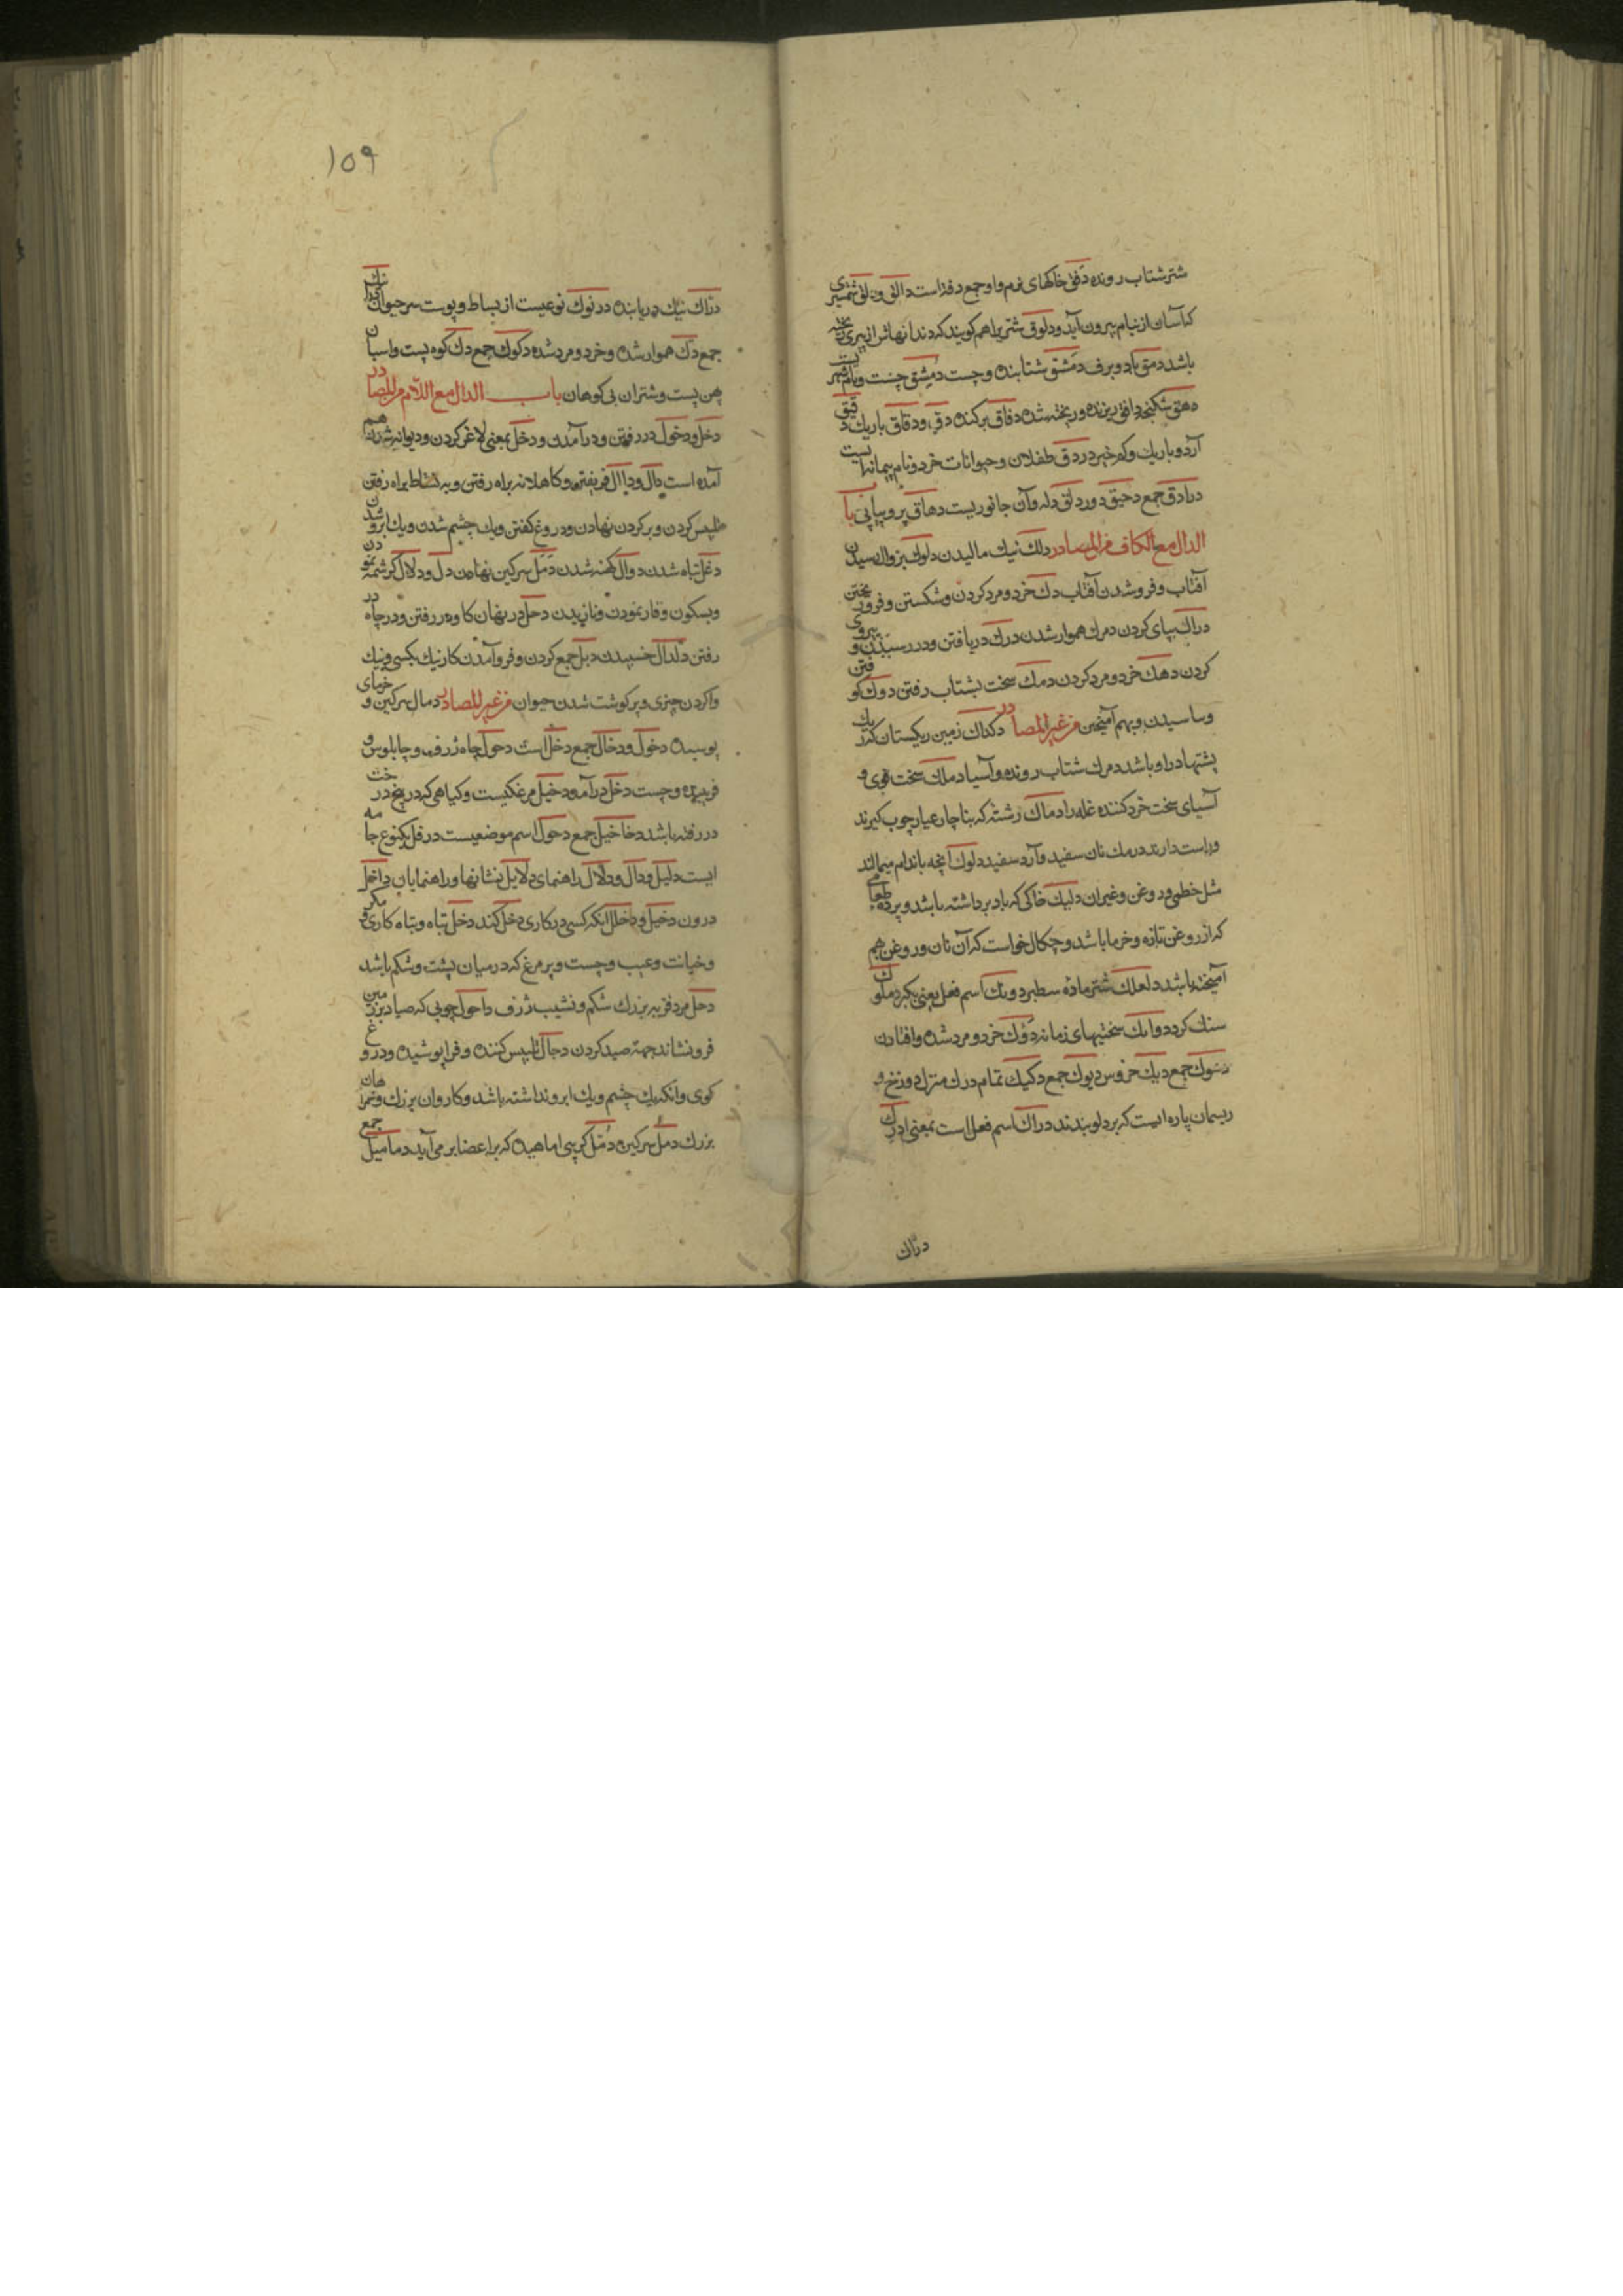 شتر شتاب رونده دفق خاکهای نرم واو جمع دفقا است دالق و دلق شمشیری
که آسان از نیام بیرون آید و دلوق شتریرا هم کویند که دندانهاش از پیری ریخته
باشد دمق باد و برف دمشق شتابنده و چست دمشق چست و نام شهریست
دهق شکنجه دافق ریزنده و ریخته شده دفاق پرکننده دق و دقاق باریک دقیق
آرد و باریک و کم خیر دردق طفلان و حیوانات خرد و نام پیمانه ایست
درادق جمع دحیق دور دلق دله وآن جانوریست دهاق پر و پیاپی باب
الدال مع الکاف من المصادر دلک نیک مالیدن دلوک بزوال رسیدن
آفتاب و فرو شدن آفتاب دک خرد و مرد کردن و شکستن و فرو ریختن
دراک پیاپی کردن دمک هموار شدن درک دریافتن و در رسیدن و پیروی
کردن دهک خرد و مرد کردن دمک سخت بشتاب رفتن دوک کوفتن
وساسیدن وبهم آمیختن من غیر المصادر دکداک زمین ریکستان که ریک
پشتها دراو باشد دمک شتاب رونده وآسیا دملک سخت قوی و
آسیای سخت خرد کننده غله را دماک رشته که بنایان عیار چوب کیرند
و راست دارند درمک نان سفید وآرد سفید دلوک آنچه باندام میمالند
مثل خطمی و روغن و غیر ان دلیک خاکی که باد برداشته باشد و پرده طعامی
که از روغن تازه وخرما باشد و چکال خواست که آن نان و روغن بهم
آمیخته باشد دلعک شتر ماده سطبر دونک اسم فعل یعنی بکیر دملوک
سنک کرد دوایک سختیهای زمانه دوک خرد و مرد شده وافتادن
دنوک جمع دیک خروس دیوک جمع دکیک تمام درک منزل دوزخ و
ریسمان پاره ایست که بر دلو بندند دراک اسم فعل است بمعنی ادرک
دراک
۱۵۹
دراک نیک دریابنده درنوک نوعیست از بساط و پوست سر حیوان درانک
جمع دک هموار شده وخرد و مرد شده دکوک جمع دک کوه پست واسبان
پهن پست و شتران بی کوهان باب الدال مع اللام من المصادر
دخل و دخول در رفتن و در آمدن و دخل بمعنی لاغر کردن و دیوانه شدن هم
آمده است دال و دالال فریفتن و کاهلانه براه رفتن و به نشاط براه رفتن
تلبیس کردن و بر کردن نهادن و دروغ کفتن ویک چشم شدن ویک ابرو شدن
دغل تباه شدن دوال کهنه شدن دمل سرکین نهادن دل و دلال کرشمه نمودن
و بسکون و قار نمودن و نازیدن دحل در نهان کاوه در رفتن و در چاه در
رفتن دلدال خسپیدن دبل جمع کردن و فرو آمدن کار نیک بکسی و نیک
وا کردن چیزی و پر کوشت شدن حیوان من غیر المصادر دمال سرکین و خرمای
پوسیده دخول و دخال جمع دخل است دحول چاه ژرف و چابلوس و
فریبنده و چست دخل درآمد دخیل مرغکیست و کیاهی که در بیخ درخت
در رفته باشد دخاخیل جمع دحول اسم موضعیست درقل یکنوع جامه
ایست دلیل و دال و دلال راهنمای دلایل نشانها و راهنمایان داخل
درون دخیل و داخلل انکه کسی در کاری دخل کند دخل تباه و تباه کاری و مکر
و خیانت و عیب و چست و پر مرغ که در میان پشت و شکم باشد
دحل مرد فربه بزرک شکم و نشیب ژرف داحول چوبی که صیاد بزمین
فرو نشاند جهة صید کردن دجال تلبیس کننده و فرا پوشیده و دروغ
کوی وانکه یک چشم و یک ابرو نداشته باشد و کاروان بزرک و همراهان
بزرک دمل سرکین دمل کریهی اماهیده که بر اعضا بر می آید دمامیل جمع